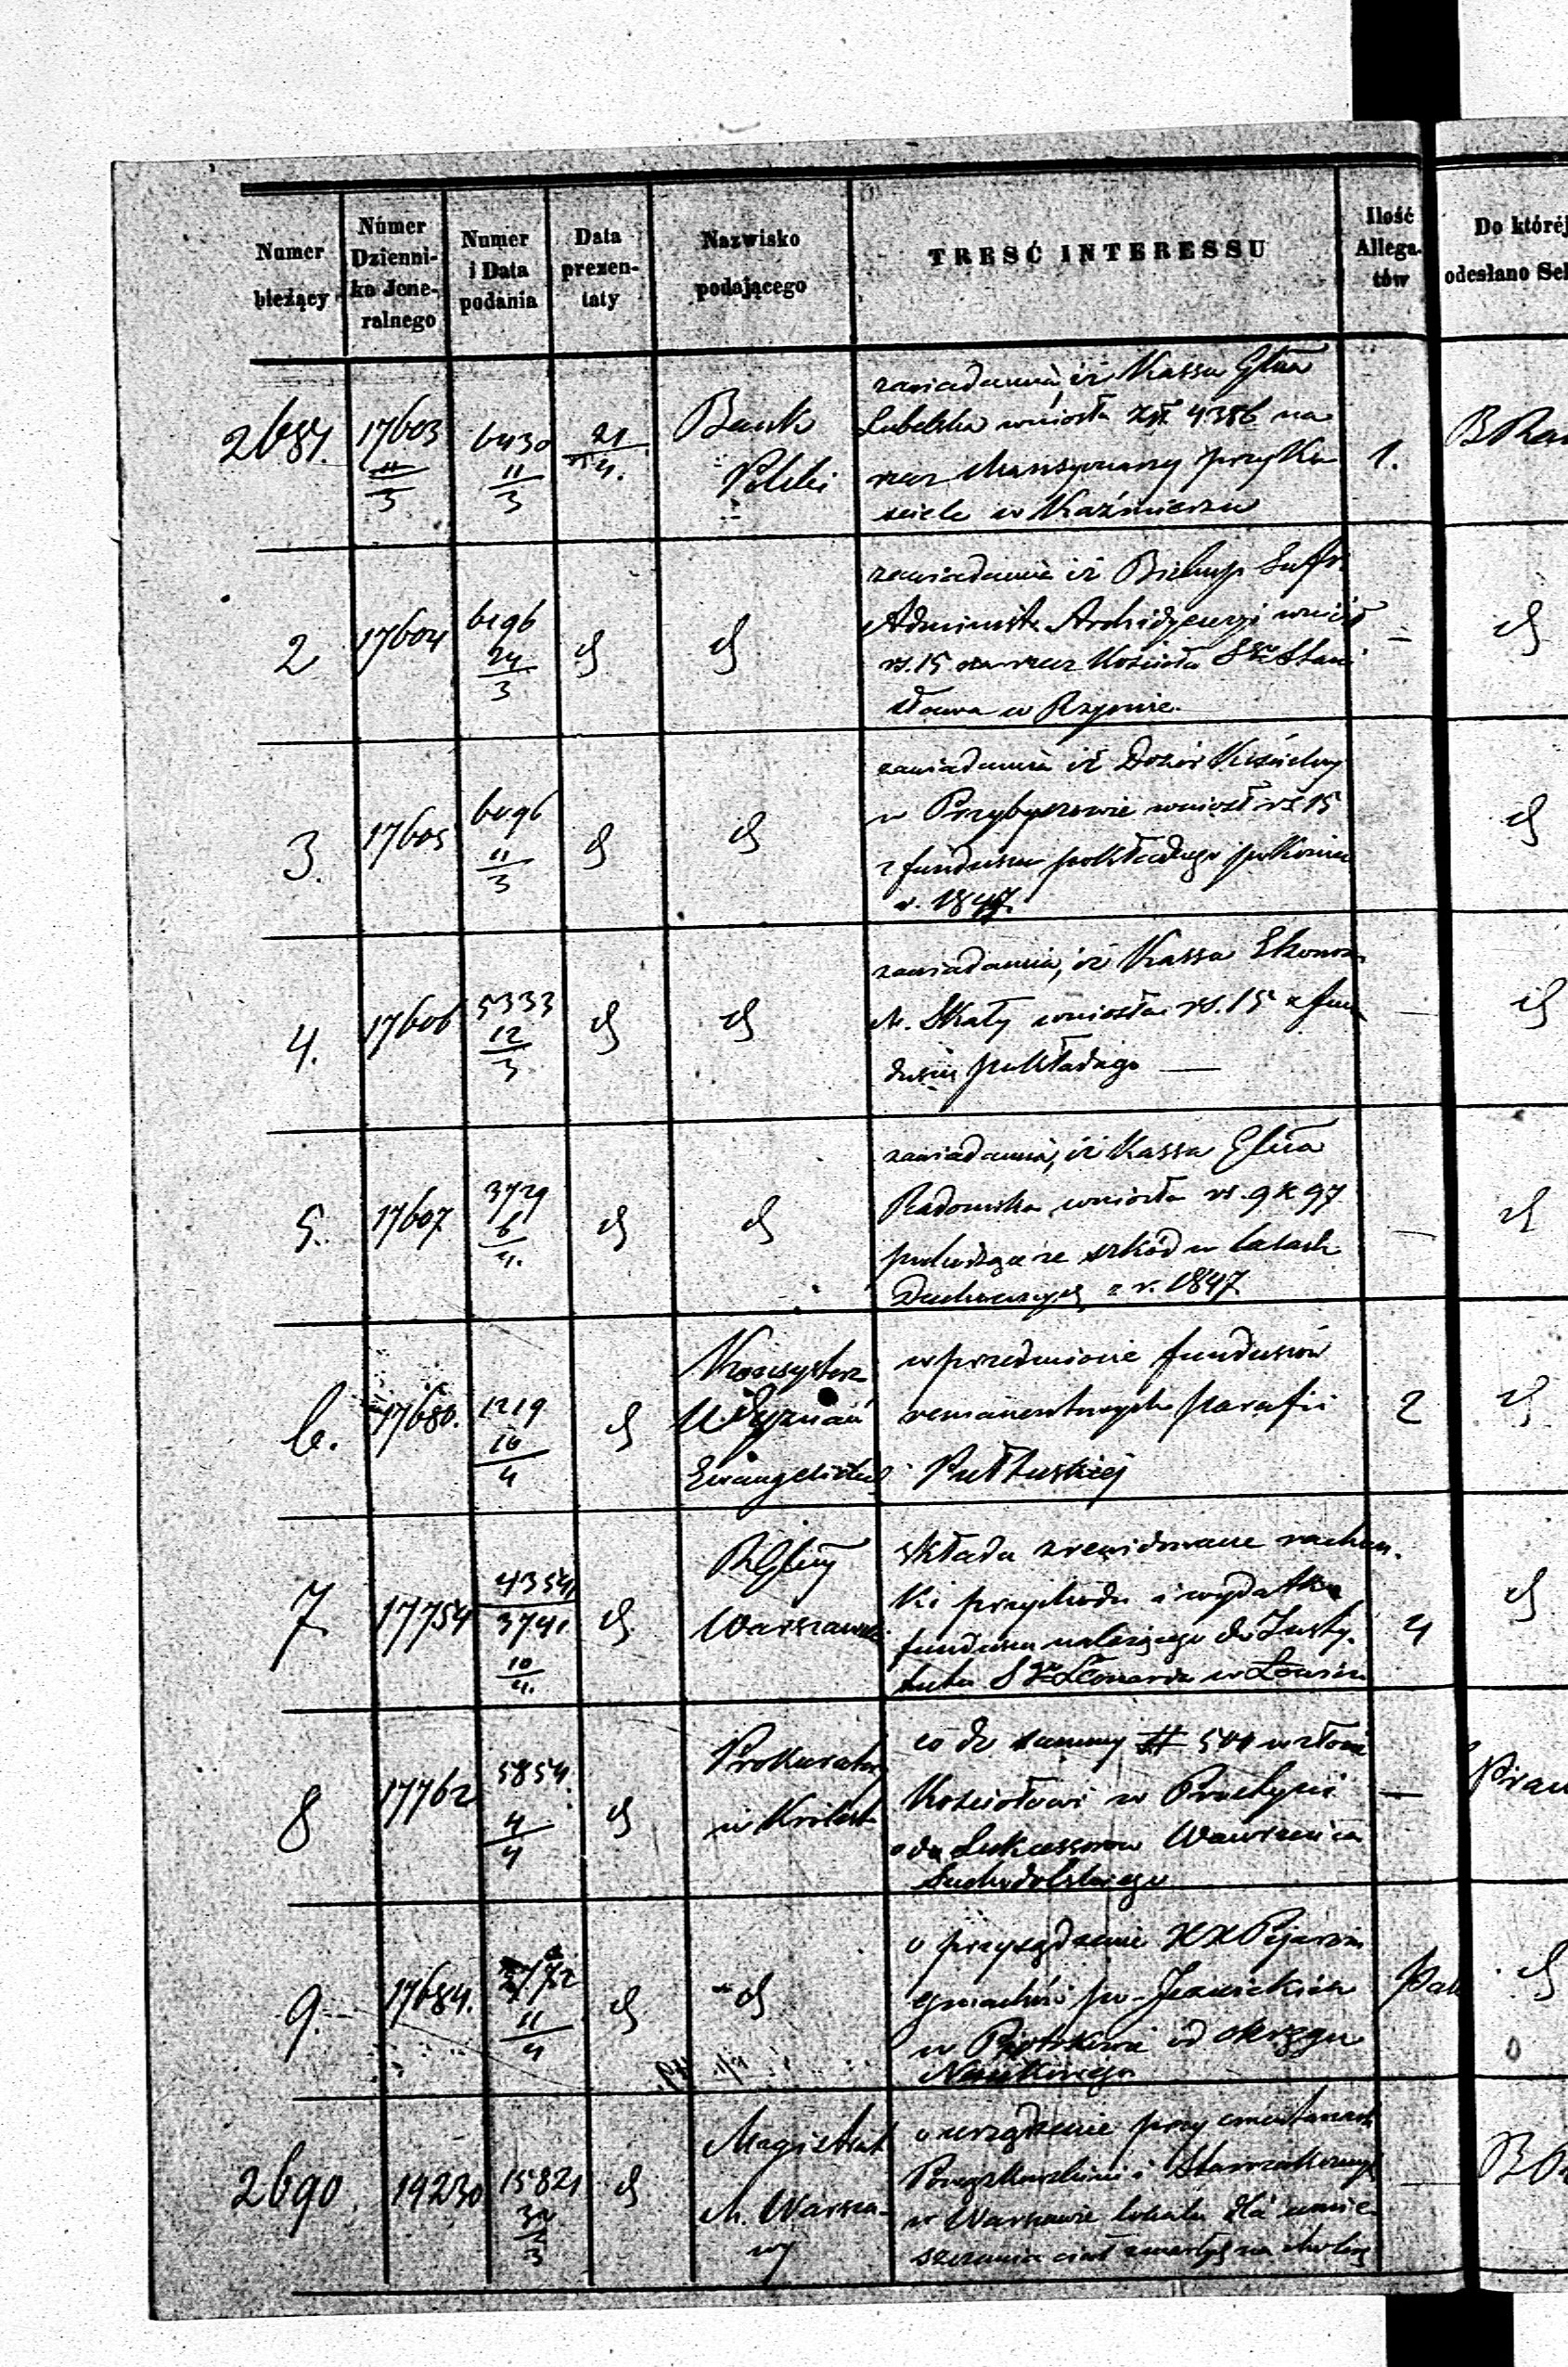 Numer bieżący
Númer Dzienni-ka Jene-ralnego
Numer i Data podania
Data prezen-taty
Nazwisko podającego
TREŚĆ INTERESSU
Ilość Allega-tów
Do której odesłano
17603 11/3
6430 11/3
21/4.
Bank
Polski
zawiadamia, iż Kassa Głna
Lubelska wniosła złł 4386 na
rzecz przy Ko
ściele w Kaźmierzu
1.
2
17604
6196 24/3
d
d
zawiadamia iż Biskup Sufr.
Administr. Archidyecezji wniósł
rs. 15 na rzecz Kościoła Sgo Stani
sława w Rzymie.
–
d
3.
17605
6096 11/3
d
d
zawiadamia iż Dozór Kościelny
w Przybyszewie wniósł rs 15
z funduszu pokładnego
r. 1847.
d
4.
17606
5333 12/3
d
d
zawiadamia, iż Kassa Ekonom.
M. Skały wniosła rs. 15 z fun
duszu pokładnego —
d
5.
17607
3729 6/4.
d
d
zawiadamia, iż Kassa Głna
Radomska wniosła rs. 9 k 97
pochodzące ze szkód w lasach
Duchownych z r. 1847
d
6.
17680.
1219 10/4
d
Konsystorz
Wyznań
Ewangelickich
w przedmiocie funduszów
remanentowych parafii
Pułtuskiej
2
d
7
17754
4354/3741 10/4.
d
R Głny
Warszawski
składa zrewidowane rachun.
ki przychodu i wydatku
funduszu należącego do Insty.
tutu Sgo Leonarda w Łowiczu
4
d
8
17762
5854. 4/4
d
Prokurator
w Królest
co do summy # 500
Kościołowi w Prostyni
od Sukcessorów Wawrzeńca
Suchodolskiego
—
9.
17684.
11/4
d
d
o przysądzenie XX Pijarom
gmachów po-Jezuickich
w Piotrkowie od okręgu
Naukowego
d
2690
19230
15821
d
Magistrat
M. Warsza-
wy
o urządzenie przy cmentarzach
Powązkowskim i Starozakonnych
w Warszawie lokalu dla umie-
szczenia ciał zmarłych na cholerę